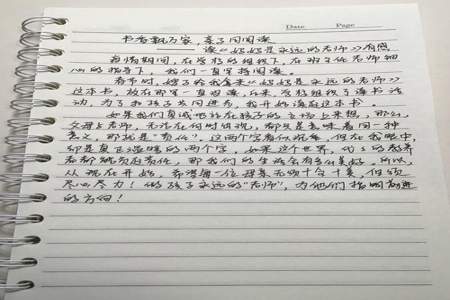 Date Page
书香飘万家，亲子同阅读
——读《妈妈是永远的老师》有感
疫情期间，在学校的组织下，在班主任老师细
心的指导下，我们一直坚持阅读。
春节时，嫂子给我拿来《妈妈是永远的老师》
这本书，放在那里一直没读，后来，学校组织了读书活
动，为了和孩子共同进步，我开始读起这本书。
如果我们真诚地站在孩子的立场上来想，那么，
父母与老师，无论在何时何地，都只意味着同一种
意义，那就是"责任"，这两个字看似简单，但在我眼中，
却是真正温暖的两个字，如果这个世界，
者都能负起责任，那我们的生活会有多么美好。所以，
从现在开始，希望每一位母亲无须十全十美，但须
尽心尽力！做孩子永远的"老师"，为他们指明前进
的方向！